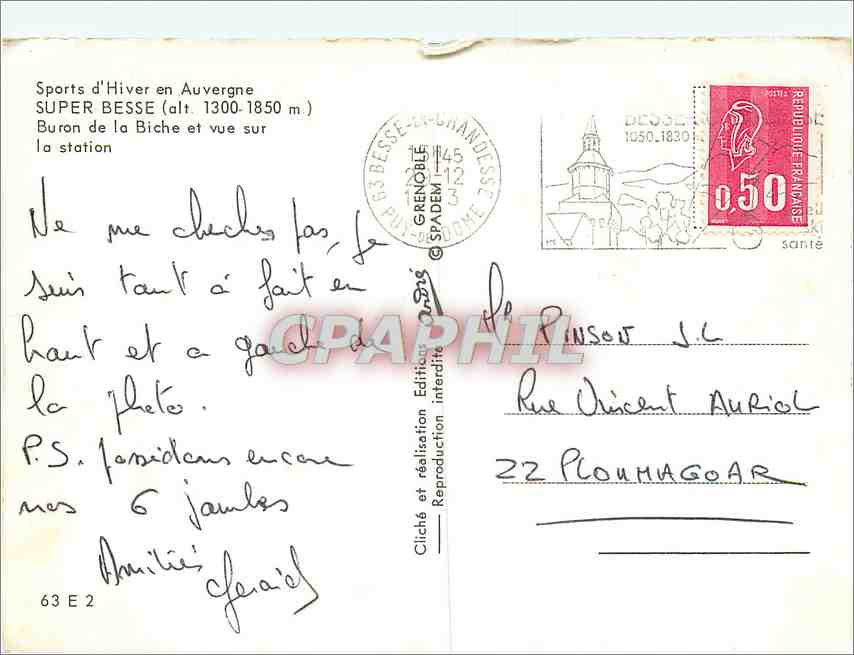 Sports d'Hiver en Auvergne
SUPER BESSE (alt. 1300-1850 m.)
Buron de la Biche et vue sur
la station
Ne me cherches pas, je
suis tout à fait en
haut et a gauche de
la photo.
P.S. possédons encore
nos 6 jambes
Amitiés
Gérard
63 E 2
Cliché et réalisation Editions André GRENOBLE
Reproduction interdite © SPADEM
63 BESSE-EN-CHANDESSE
45
12
3
PUY-DE-DOME
BESSE
1050-1830
ski
santé
POSTES
REPUBLIQUE FRANÇAISE
0,50
Mr PINSON J.L
Rue Vincent AURIOL
22 PLOUMAGOAR
CPAPHIL